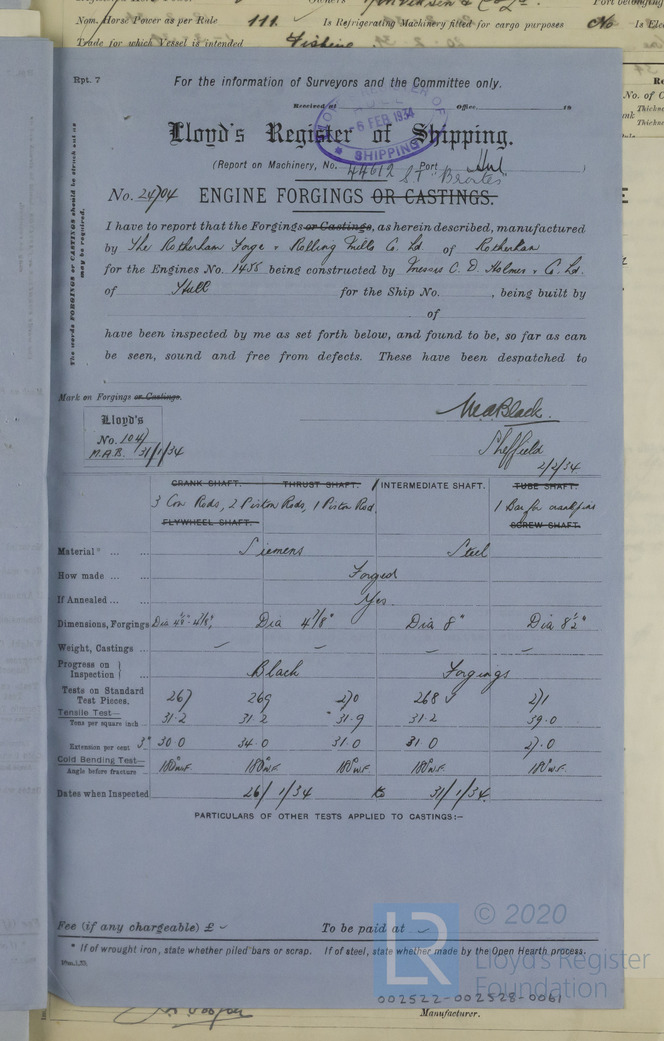 Nom. Horse Power as per Rule 111. Is Refrigerating Machinery fitted for cargo purposes No Is Ele
Trade for which Vessel is intended Fishing
No. of C
Thickne
Thickne
Rpt. 7
For the information of Surveyors and the Committee only.
Received at Office 19
-6 FEB 1934
SHIPPING
Lloyd's Register of Shipping.
(Report on Machinery, No. 44612 Port Hul )
St "Brontes"
No. 24704 ENGINE FORGINGS OR CASTINGS.
The words FORGINGS or CASTINGS should be struck out as may be required.
I have to report that the Forgings or Castings, as herein described, manufactured
by The Rotherham Forge & Rolling Mills Co. Ld. of Rotherham
for the Engines No. 1455 being constructed by Messrs C. D. Holmes & Co. Ld.
of Hull for the Ship No. , being built by
of
have been inspected by me as set forth below, and found to be, so far as can
be seen, sound and free from defects. These have been despatched to
Mark on Forgings or Castings.
Lloyd's
No. 104
M.A.B. 31/1/34
M.A. Black.
Sheffield
2/2/34
CRANK SHAFT. THRUST SHAFT. 1 INTERMEDIATE SHAFT. TUBE SHAFT.
3 Con Rods, 2 Piston Rods, 1 Piston Rod 1 Bar for crankpins
FLYWHEEL SHAFT. SCREW SHAFT.
Material* ... ... Siemens Steel
How made ... ... Forged
If Annealed ... ... Yes.
Dimensions, Forgings Dia 4⅞" Dia 4⅞" Dia 8" Dia 8½"
Weight, Castings ...
Progress on Inspection } ... Black Forgings
Tests on Standard Test Pieces. 267 269 270 268 271
Tensile Test—
Tons per square inch ... 31.2 31.2 31.9 31.2 39.0
Extension per cent 3" 30.0 34.0 31.0 31.0 27.0
Cold Bending Test—
Angle before fracture ... 180° U.F. 180° U.F. 180° U.F. 180° U.F. 180° U.F.
Dates when Inspected 26/1/34 to 31/1/34.
PARTICULARS OF OTHER TESTS APPLIED TO CASTINGS:-
Fee (if any chargeable) £ To be paid at
* If of wrought iron, state whether piled bars or scrap. If of steel, state whether made by the Open Hearth process.
© 2020
LR
Lloyd's Register
Foundation
002522-002528-0061
Manufacturer.